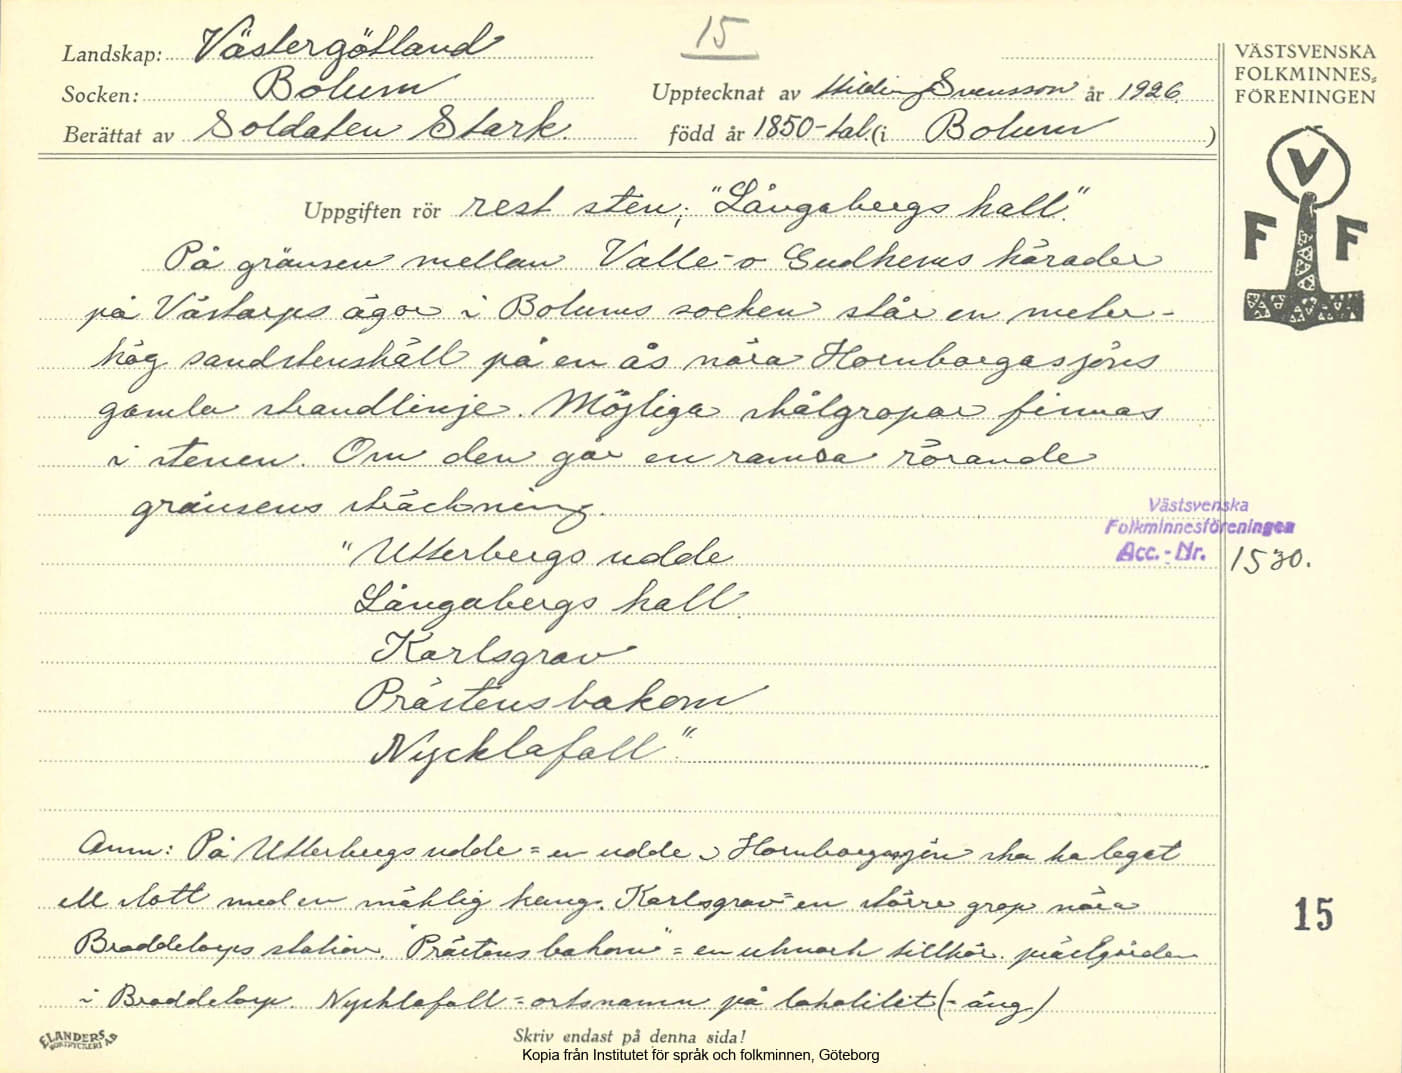 15
Landskap: Västergötland
Socken: Bolum
Upptecknat av Hilding Svensson år 1926.
Berättat av Soldaten Stark.
född år 1850-tal. (i Bolum)
VÄSTSVENSKA
FOLKMINNES-
FÖRENINGEN
V
F F
Uppgiften rör rest sten; "Långabergs hall".
På gränsen mellan Valle- o Gudhems härader
på Västarps ägor i Bolums socken står en meter-
hög sandstenshäll på en ås nära Hornborgasjöns
gamla strandlinje. Möjliga skålgropar finnas
i stenen. Om den går en ramsa rörande
gränsens sträckning.
"Utterbergs udde
Långabergs hall
Karlsgrav
Prästens bakom
Nycklafall".
Västsvenska
Folkminnesföreningen
Acc.-Nr. 1530.
Anm: På Utterbergs udde = en udde i Hornborgasjön ska ha legat
ett slott med en mäktig kung. Karlsgrav = en större grop nära
Broddetorps station. "Prästens bakom" = en utmark tillhör. prästgården
i Broddetorp. Nycklafall = ortsnamn på lokalitet (- äng)
15
ELANDERS
BOKTRYCKERI AB
Skriv endast på denna sida!
Kopia från Institutet för språk och folkminnen, Göteborg